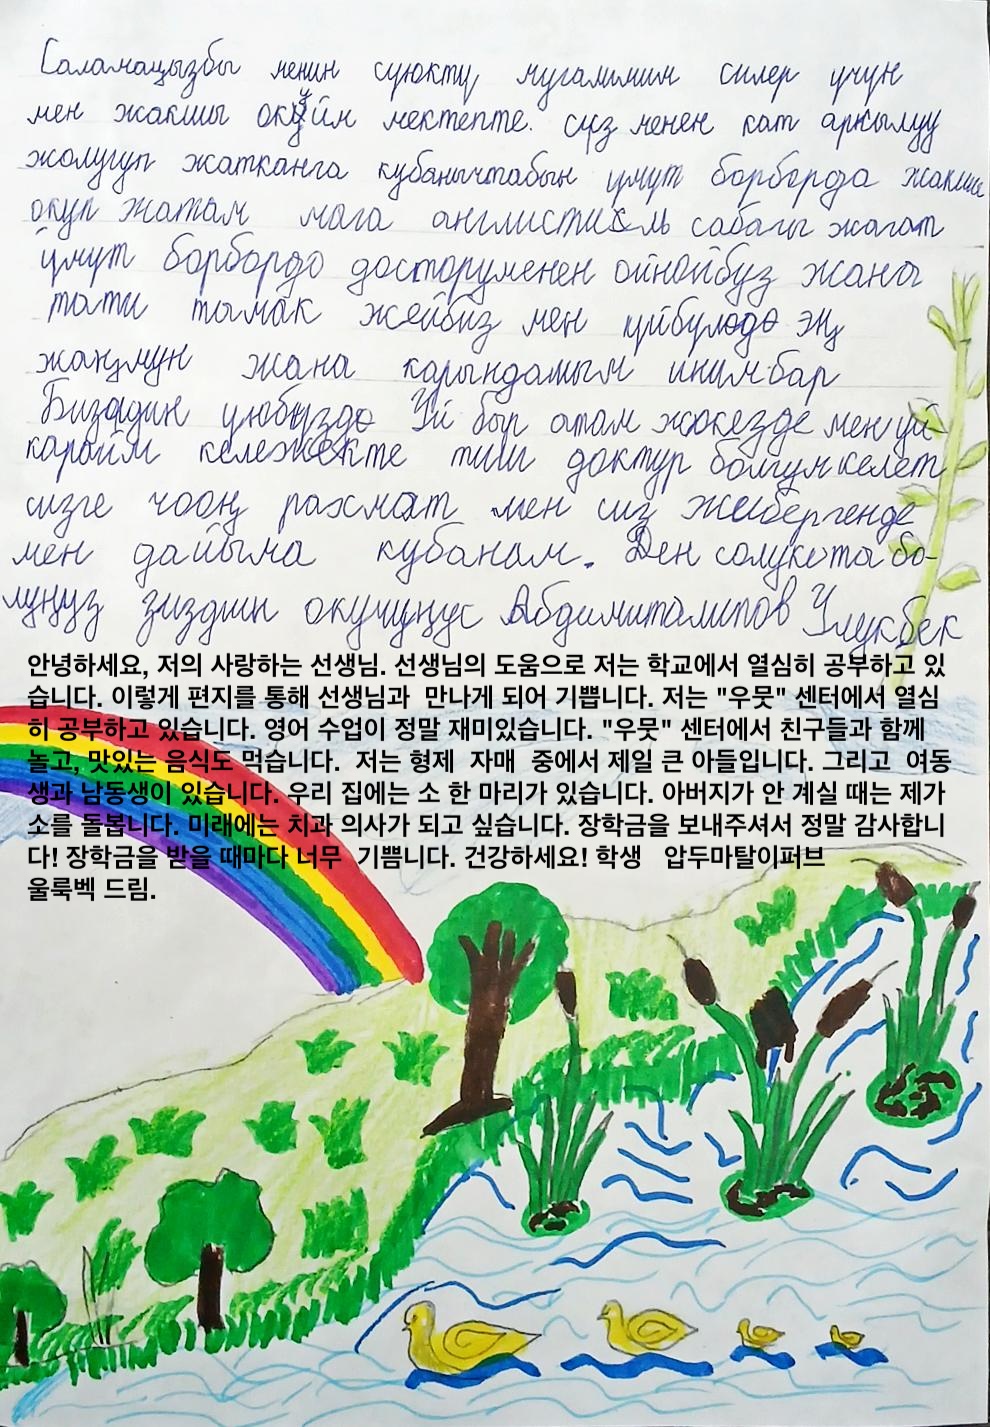 Саламацызбы менин суюктуу мугалимим силер учун
мен жакшы окуйм мектепте. сиз менен кат аркылуу
жолугуп жатканга кубанычтабын умут борборда жакшы
окуп жатам мага англистиль сабагы жагат
умут борбордо досторуменен ойнойбуз жана
тати тамак жейбиз мен уйбулодо эң
жаңмун жана карындашым инимбар
Биздин уюбузда Уй быр атам жокезде мен уй-
каройм кележекте тиш доктур болгум келет
сизге чооң рахмат мен сиз жеибергенде
мен дайыма кубанам. Ден солукота бо-
луңуз зиздин окучуңус Абдимиталипов Улукбек
안녕하세요, 저의 사랑하는 선생님. 선생님의 도움으로 저는 학교에서 열심히 공부하고 있
습니다. 이렇게 편지를 통해 선생님과 만나게 되어 기쁩니다. 저는 "우뭇" 센터에서 열심
히 공부하고 있습니다. 영어 수업이 정말 재미있습니다. "우뭇" 센터에서 친구들과 함께
놀고, 맛있는 음식도 먹습니다. 저는 형제 자매 중에서 제일 큰 아들입니다. 그리고 여동
생과 남동생이 있습니다. 우리 집에는 소 한 마리가 있습니다. 아버지가 안 계실 때는 제가
소를 돌봅니다. 미래에는 치과 의사가 되고 싶습니다. 장학금을 보내주셔서 정말 감사합니
다! 장학금을 받을 때마다 너무 기쁩니다. 건강하세요! 학생 압두마탈이퍼브
울룩벡 드림.